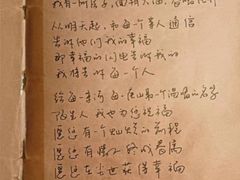 我有一所房子，面朝大海，春暖花开
从明天起，和每一个亲人通信
告诉他们我的幸福
那幸福的闪电告诉我的
我将告诉每一个人
给每一条河每一座山取一个温暖的名字
陌生人，我也为您祝福
愿您有一个灿烂的前程
愿您有情人终成眷属
愿您在尘世获得幸福